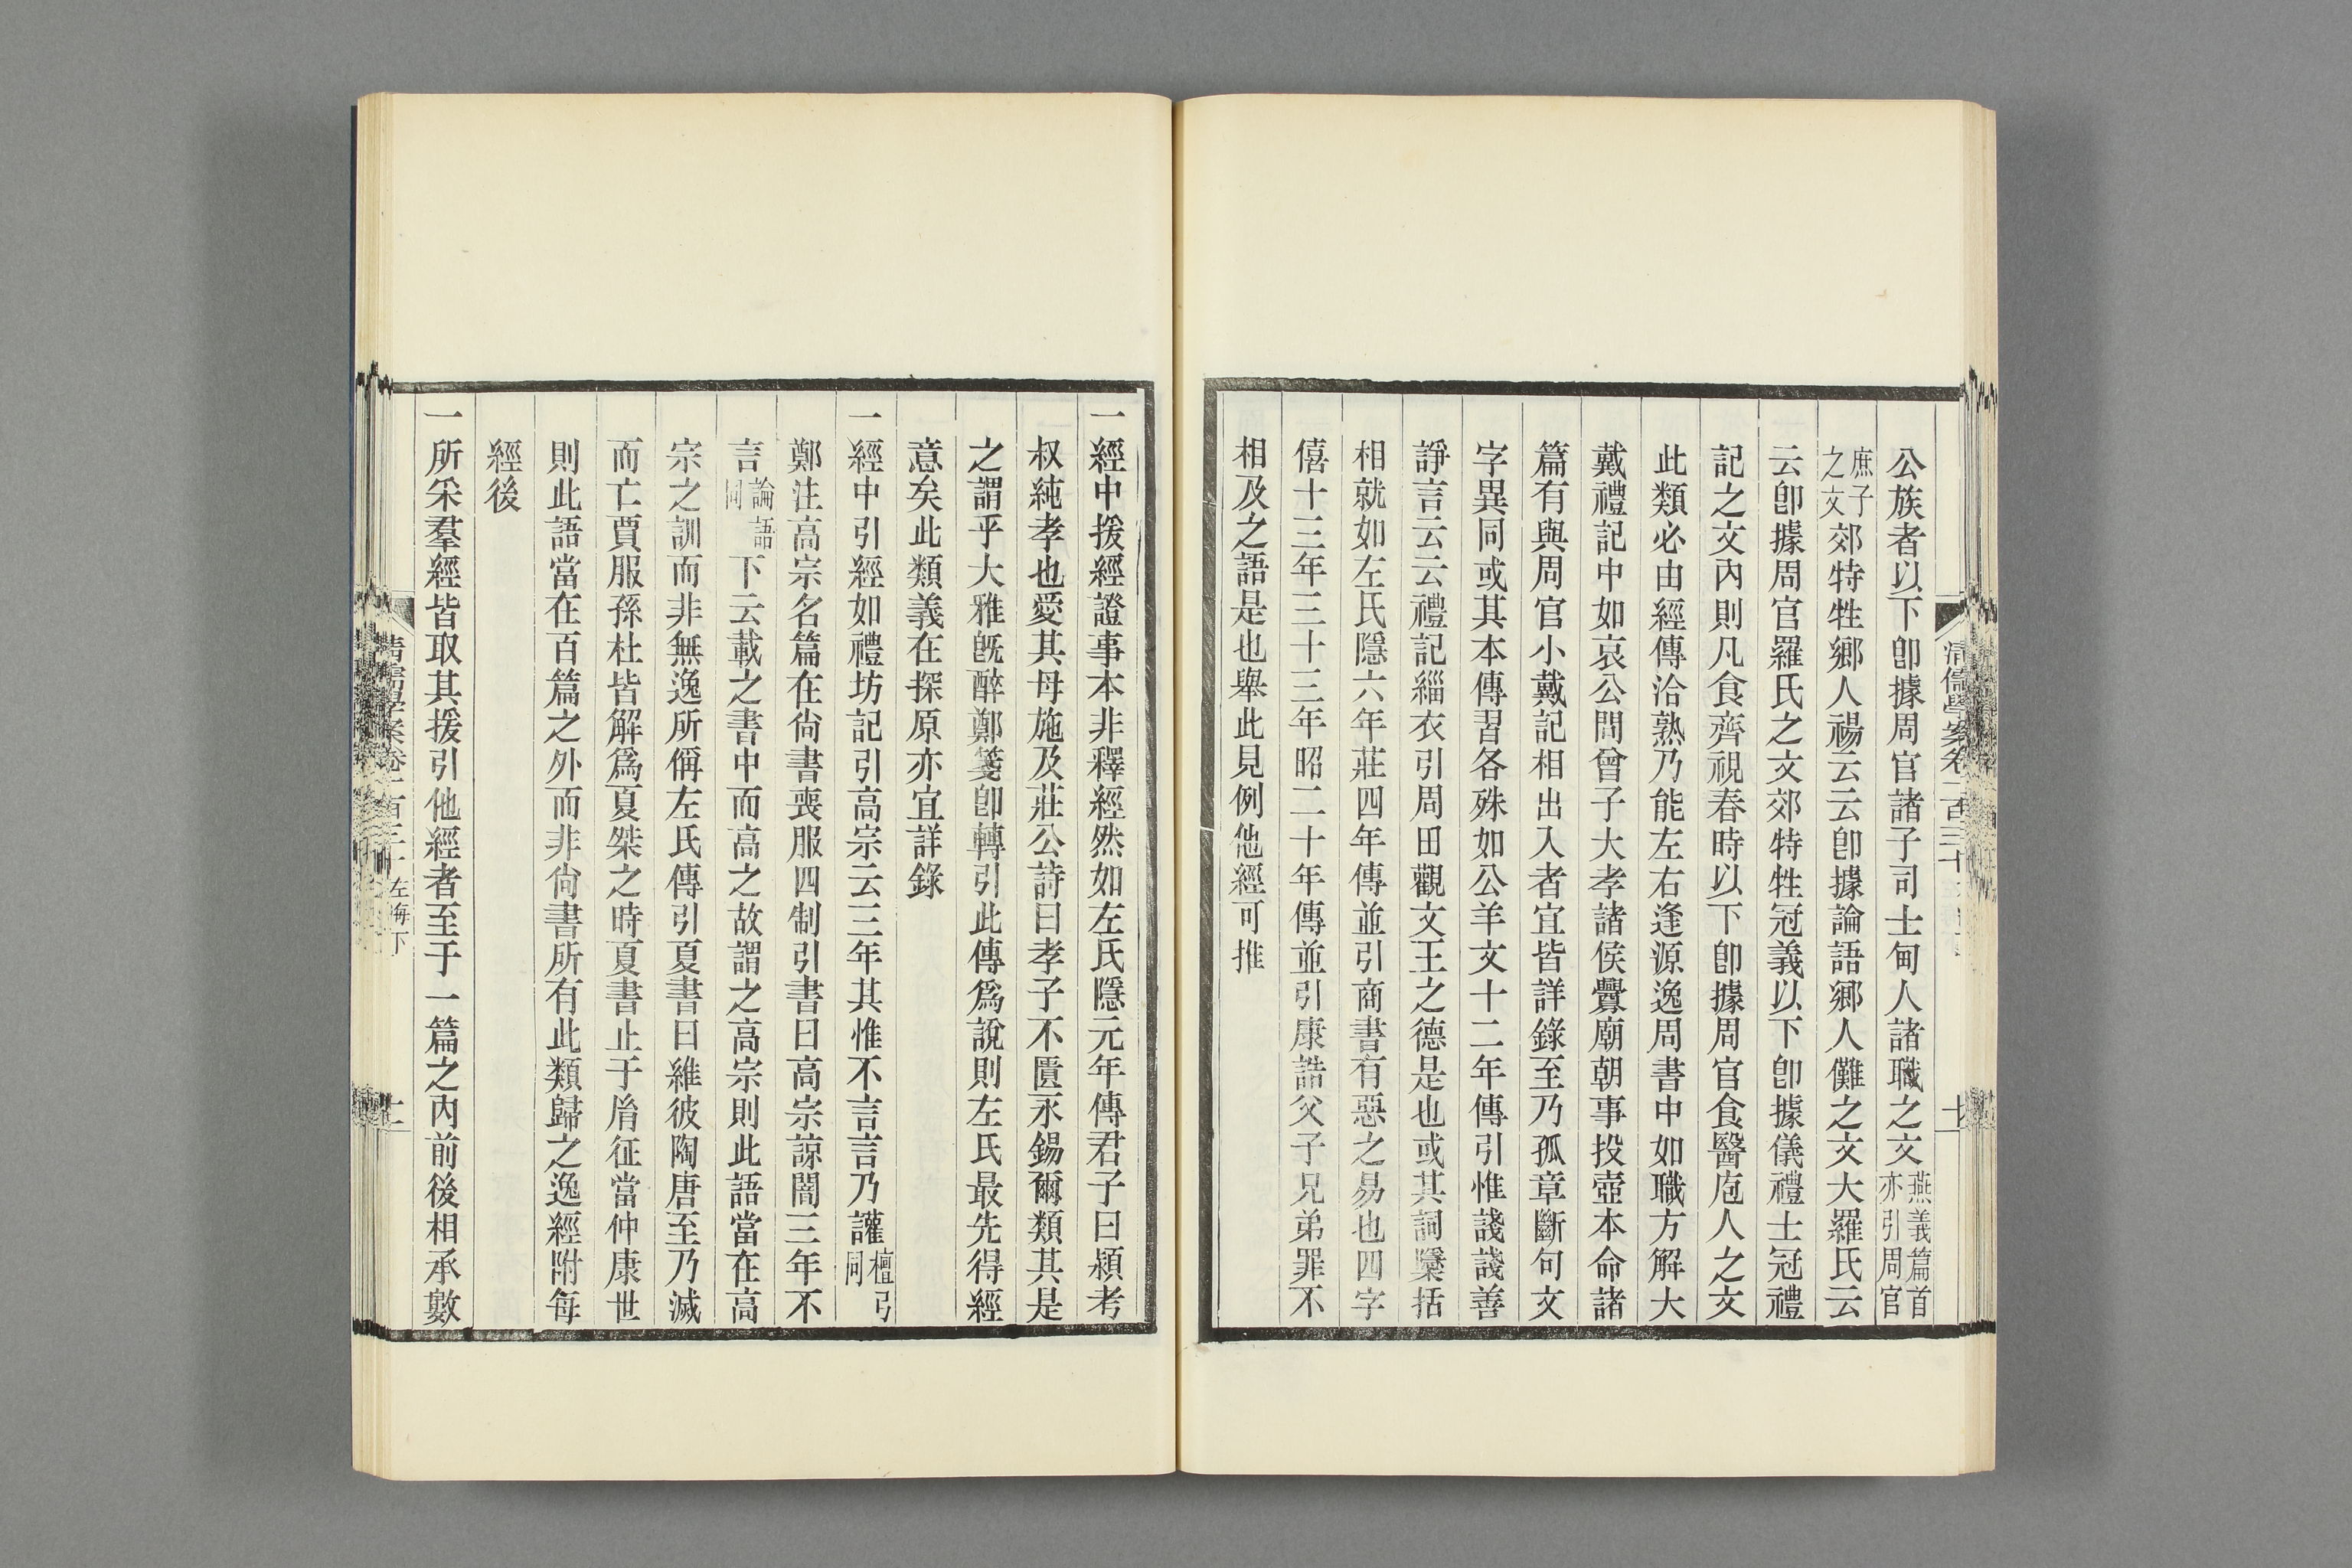 公族者以下卽據周官諸子司士甸人諸職之文燕義篇首亦引周官
庶子之文郊特牲鄉人禓云云卽據論語鄉人儺之文大羅氏云
云卽據周官羅氏之文郊特牲冠義以下卽據儀禮士冠禮
記之文內則凡食齊視春時以下卽據周官食醫庖人之文
此類必由經傳洽熟乃能左右逢源逸周書中如職方解大
戴禮記中如哀公問曾子大孝諸侯釁廟朝事投壺本命諸
篇有與周官小戴記相出入者宜皆詳錄至乃孤章斷句文
字異同或其本傳習各殊如公羊文十二年傳引惟諓諓善
諍言云云禮記緇衣引周田觀文王之德是也或其詞檃括
相就如左氏隱六年莊四年傳並引商書有惡之易也四字
僖十三年三十三年昭二十年傳並引康誥父子兄弟罪不
相及之語是也舉此見例他經可推
一經中援經證事本非釋經然如左氏隱元年傳君子曰潁考
叔純孝也愛其母施及莊公詩曰孝子不匱永錫爾類其是
之謂乎大雅旣醉鄭箋卽轉引此傳爲說則左氏最先得經
意矣此類義在探原亦宜詳錄
一經中引經如禮坊記引高宗云三年其惟不言言乃讙檀弓同
鄭注高宗名篇在尙書喪服四制引書曰高宗諒闇三年不
言論語同下云載之書中而高之故謂之高宗則此語當在高
宗之訓而非無逸所偁左氏傳引夏書曰維彼陶唐至乃滅
而亡賈服孫杜皆解爲夏桀之時夏書止于胤征當仲康世
則此語當在百篇之外而非尙書所有此類歸之逸經附每
經後
一所采羣經皆取其援引他經者至于一篇之內前後相承數
清儒學案卷一百三十 左海下